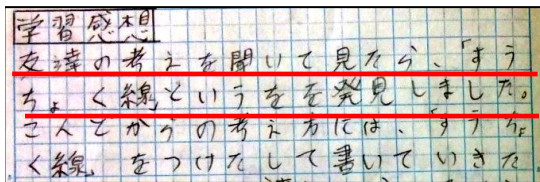 学習感想
友達の考えを聞いて見たら、「すう
ちょく線」というをを発見しました。
さんとかうの考え方には、「すうちょ
く線」をつけたして書いていきた